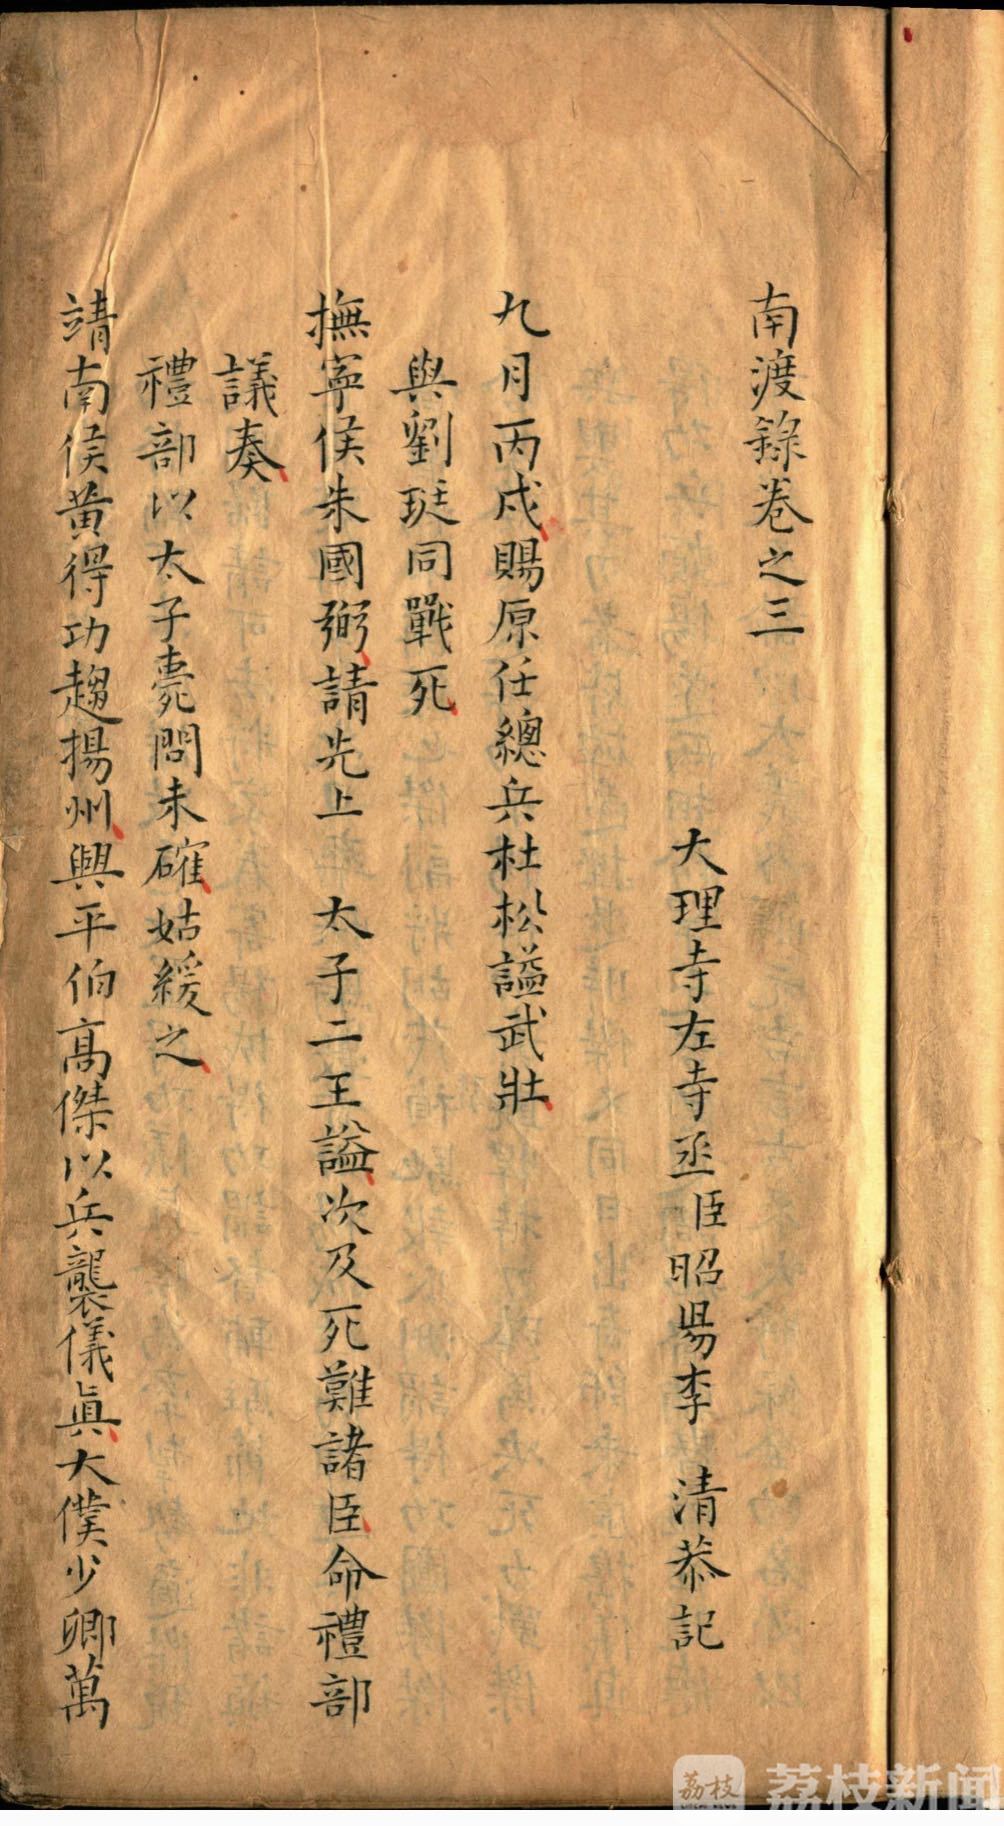 南渡錄卷之三
大理寺左寺丞臣昭陽李　清恭記
九月丙戌賜原任總兵杜松謚武壯
與劉珽同戰死
撫寧侯朱國弼請先上　太子二王謚次及死難諸臣命禮部
議奏
禮部以太子薨問未確姑緩之
靖南侯黃得功趨揚州興平伯高傑以兵襲儀眞大僕少卿萬
荔枝
荔枝新闻